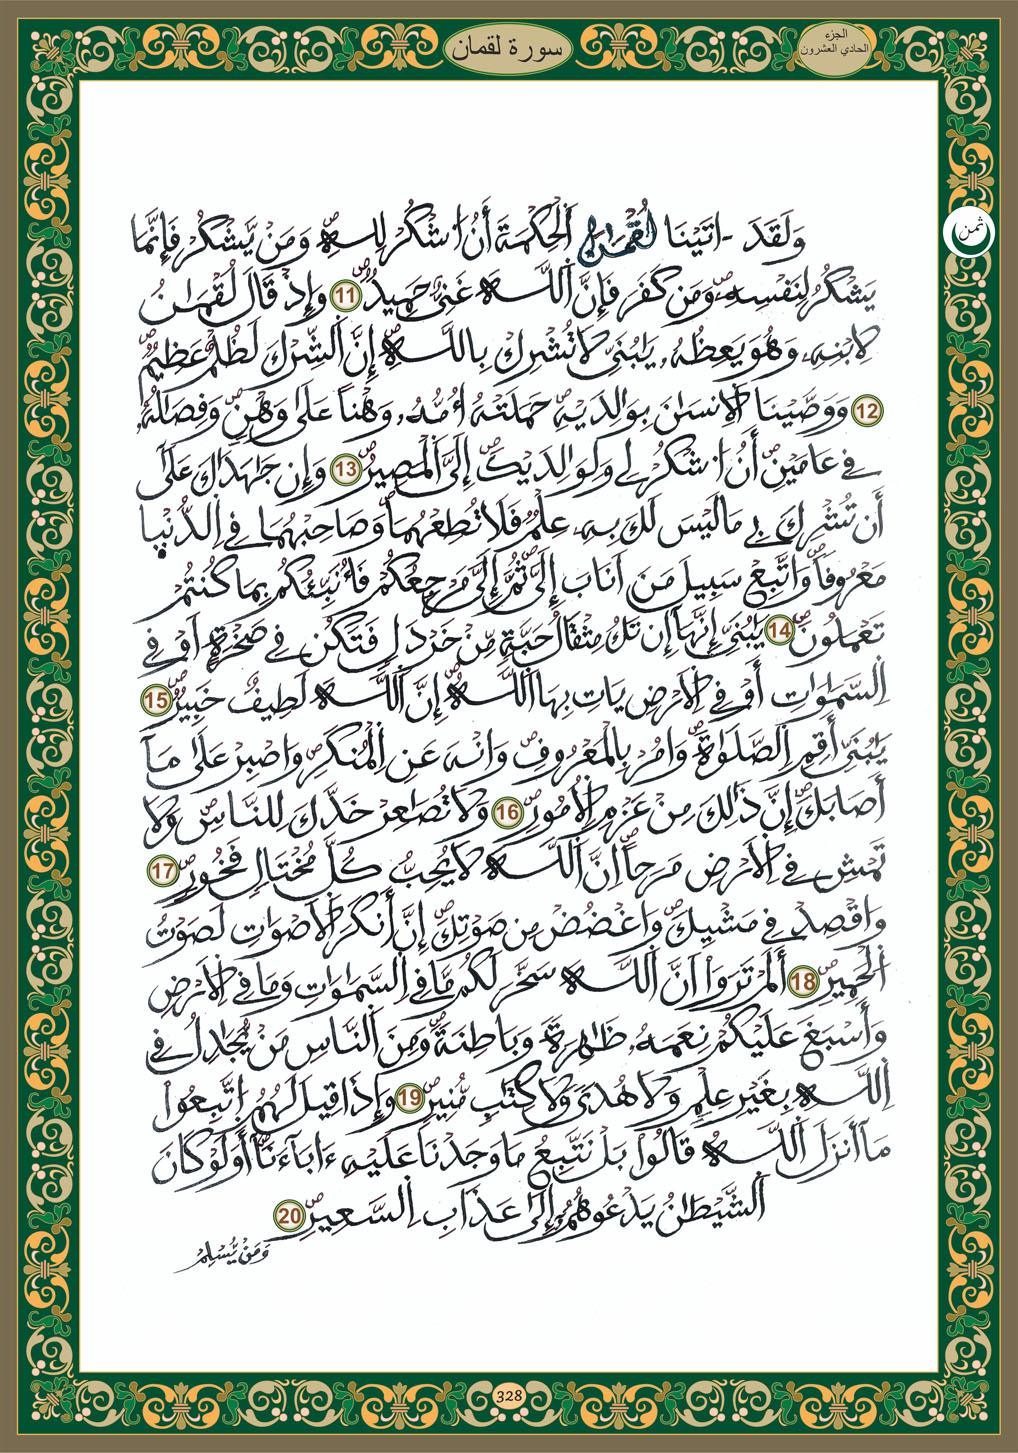 الجزء
الحادي العشرون
سورة لقمان
ثمن
وَلَقَدَ اتَيْنَا لُقْمَٰنَ اَ۬لْحِكْمَةَ أَنُ اُ۟شْكُرْ لِلهِۖ وَمَنْ يَّشْكُرْ فَإِنَّمَا
يَشْكُرُ لِنَفْسِهِۦۖ وَمَن كَفَرَ فَإِنَّ اَ۬للَّهَ غَنِيٌّ حَمِيدٞۖ 11 وَإِذْ قَالَ لُقْمَٰنُ
لِابْنِهِۦ وَهُوَ يَعِظُهُۥ يَٰبُنَيِّ لَا تُشْرِكْ بِاللَّهِۖ إِنَّ اَ۬لشِّرْكَ لَظُلْمٌ عَظِيمٞۖ
12 وَوَصَّيْنَا اَ۬لِانسَٰنَ بِوَٰلِدَيْهِۖ حَمَلَتْهُ أُمُّهُۥ وَهْناً عَلَىٰ وَهْنٖۖ وَفِصَٰلُهُۥ
فِے عَامَيْنِۖ أَنُ اُ۟شْكُرْ لِے وَلِوَٰلِدَيْكَۖ إِلَيَّ اَ۬لْمَصِيرُۖ 13 وَإِن جَٰهَدَٰكَ عَلَىٰ
أَن تُشْرِكَ بِے مَا لَيْسَ لَكَ بِهِۦ عِلْمٞ فَلَا تُطِعْهُمَاۖ وَصَاحِبْهُمَا فِے اِ۬لدُّنْيَا
مَعْرُوفاٗۖ وَاتَّبِعْ سَبِيلَ مَنَ اَنَابَ إِلَيَّۖ ثُمَّ إِلَيَّ مَرْجِعُكُمْ فَأُنَبِّئُكُم بِمَا كُنتُمْ
تَعْمَلُونَۖ 14 يَٰبُنَيِّ إِنَّهَا إِن تَكُ مِثْقَالُ حَبَّةٖ مِّنْ خَرْدَلٖ فَتَكُن فِے صَخْرَةٍ اَوْ فِے
اِ۬لسَّمَٰوَٰتِ أَوْ فِے اِ۬لَارْضِ يَاتِ بِهَا اَ۬للَّهُۖ إِنَّ اَ۬للَّهَ لَطِيفٌ خَبِيرٞۖ 15
يَٰبُنَيِّ أَقِمِ اِ۬لصَّلَوٰةَۖ وَامُرْ بِالْمَعْرُوفِۖ وَانْهَ عَنِ اِ۬لْمُنكَرِۖ وَاصْبِرْ عَلَىٰ مَآ
أَصَابَكَۖ إِنَّ ذَٰلِكَ مِنْ عَزْمِ اِ۬لُامُورِۖ 16 وَلَا تُصَٰعِرْ خَدَّكَ لِلنَّاسِۖ وَلَا
تَمْشِ فِے اِ۬لَارْضِ مَرَحاًۖ اِنَّ اَ۬للَّهَ لَا يُحِبُّ كُلَّ مُخْتَالٖ فَخُورٖۖ 17
وَاقْصِدْ فِے مَشْيِكَۖ وَاغْضُضْ مِن صَوْتِكَۖ إِنَّ أَنكَرَ اَ۬لَاصْوَٰتِ لَصَوْتُ
اُ۬لْحَمِيرِۖ 18 أَلَمْ تَرَوَاْ اَنَّ اَ۬للَّهَ سَخَّرَ لَكُم مَّا فِے اِ۬لسَّمَٰوَٰتِ وَمَا فِے اِ۬لَارْضِ
وَأَسْبَغَ عَلَيْكُمْ نِعَمَهُۥ ظَٰهِرَةٗ وَبَاطِنَةٗۖ وَمِنَ اَ۬لنَّاسِ مَنْ يُّجَٰدِلُ فِے
اِ۬للَّهِ بِغَيْرِ عِلْمٖ وَلَا هُدىٗ وَلَا كِتَٰبٖ مُّنِيرٖۖ 19 وَإِذَا قِيلَ لَهُمُ اُ۪تَّبِعُواْ
مَا أَنزَلَ اَ۬للَّهُۖ قَالُواْ بَلْ نَتَّبِعُ مَا وَجَدْنَا عَلَيْهِ ءَابَآءَنَاۖ أَوَلَوْ كَانَ
اَ۬لشَّيْطَٰنُ يَدْعُوهُمُۥ إِلَىٰ عَذَابِ اِ۬لسَّعِيرِۖ 20
وَمَنْ يُّسْلِمْ
328